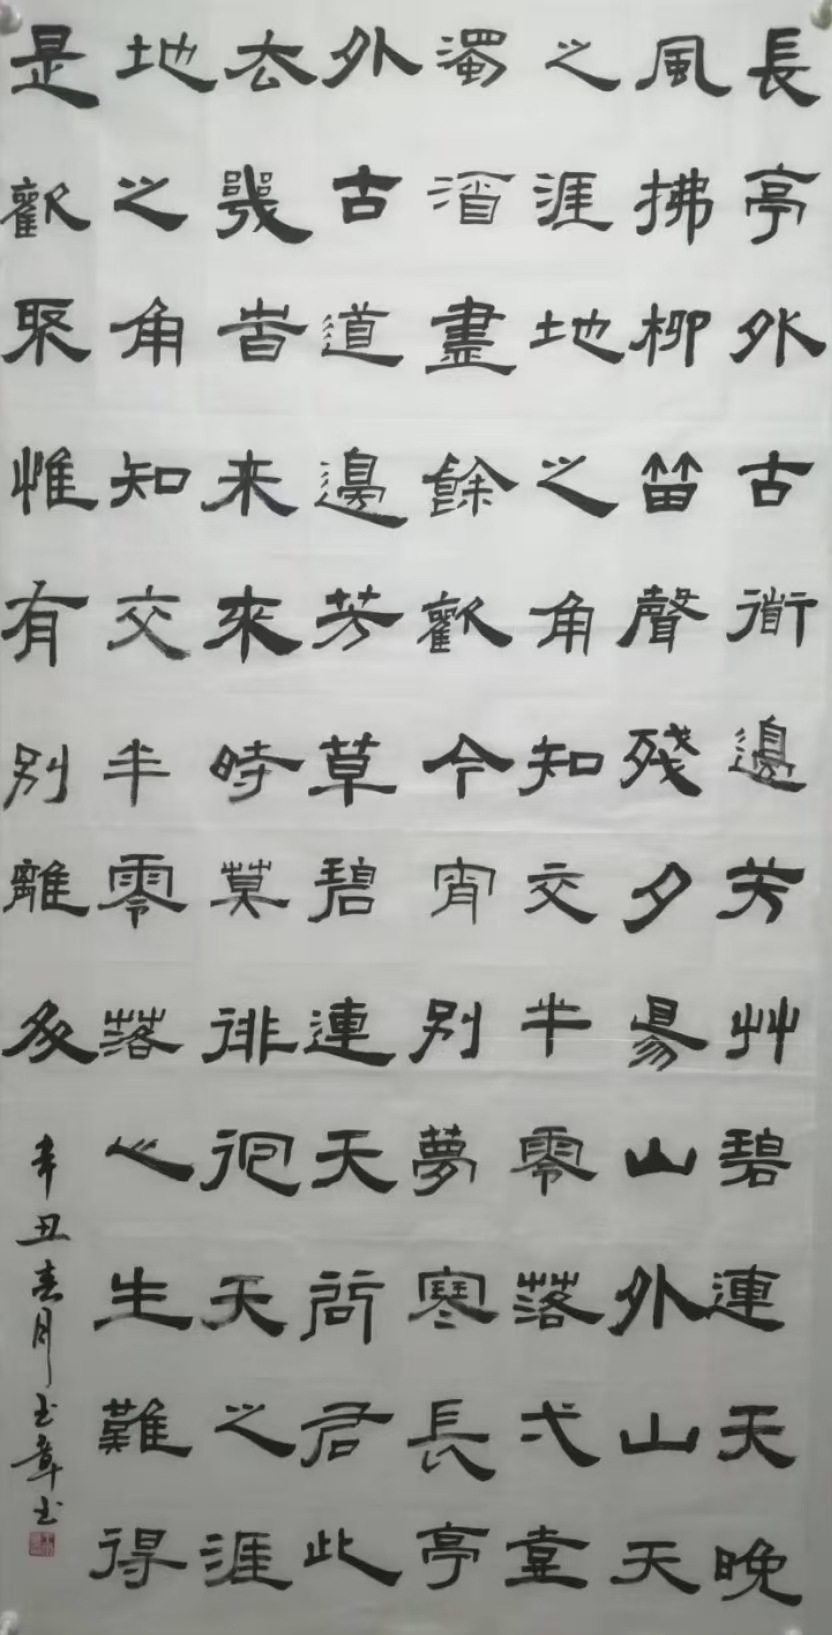 長亭外古衜邊芳艸碧連天晚
風拂柳笛聲殘夕昜山外山天
之涯地之角知交半零落弌壺
濁酒盡餘歡今宵別夢寒長亭
外古道邊芳草碧連天問君此
去幾旹来來時莫徘徊天之涯
地之角知交半零落心生難得
是歡聚惟有別離多
辛丑春月玉章书